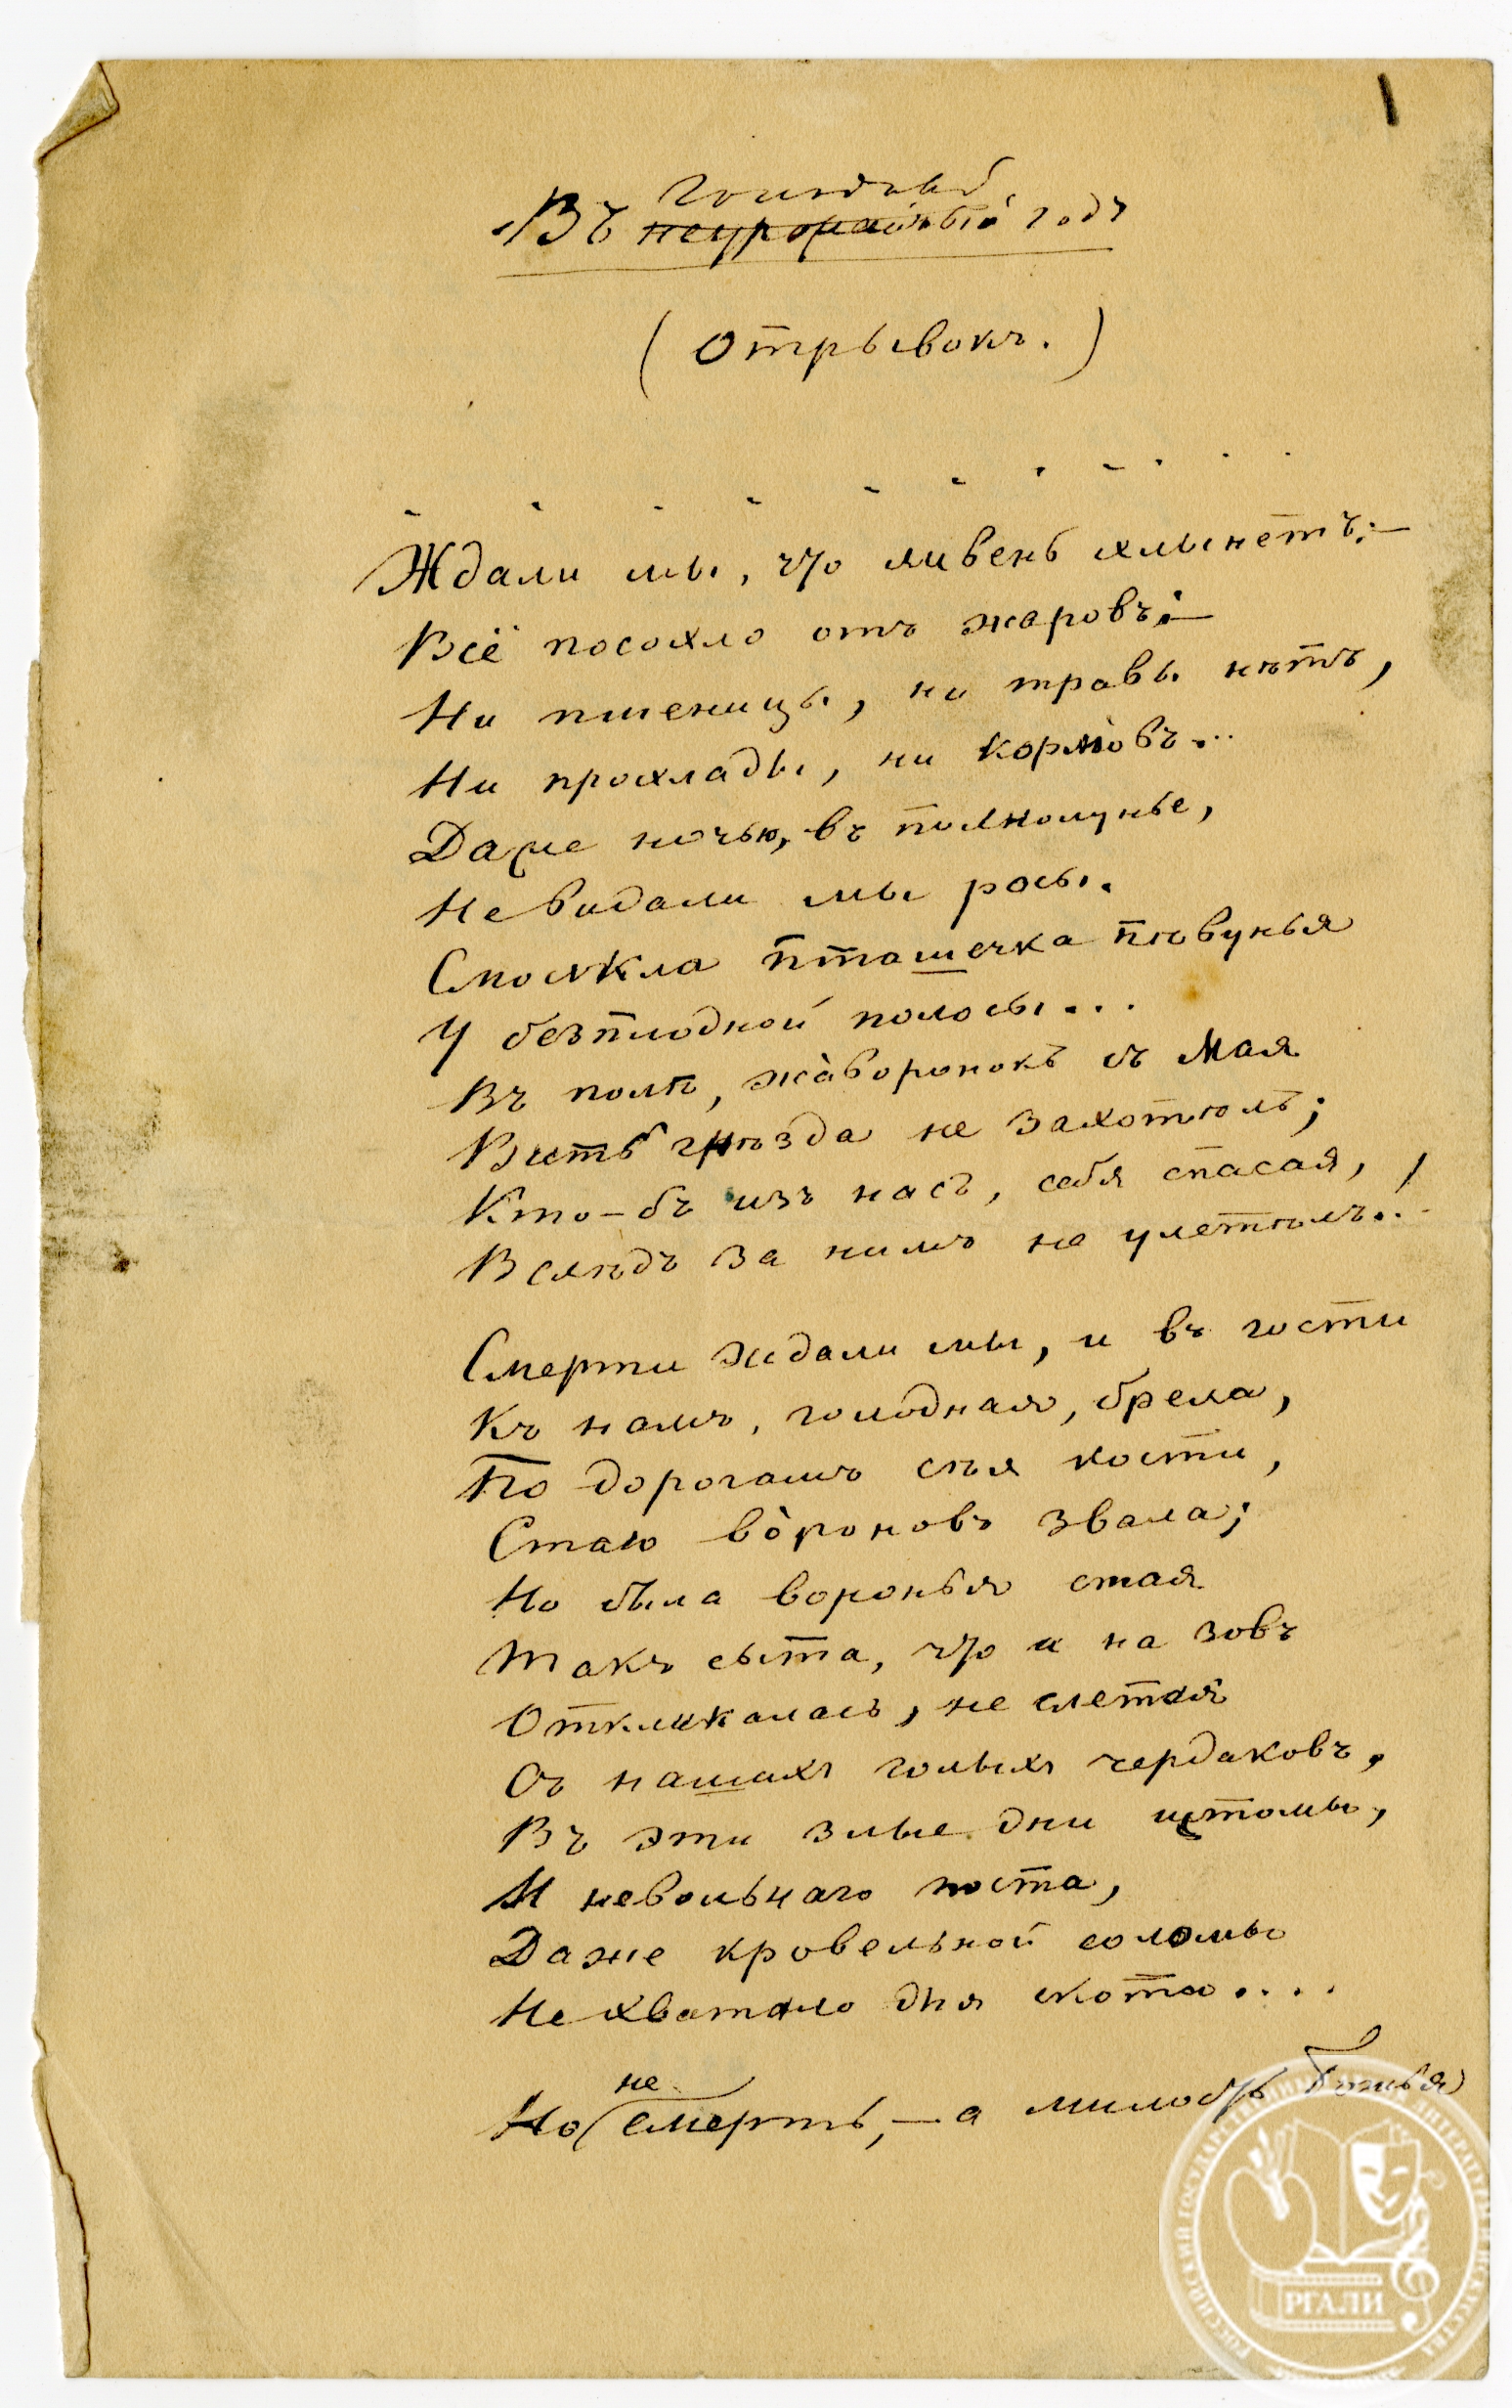 голодный
Въ неурожайный годъ
(Отрывокъ.)
Ждали мы, что ливень хлынетъ:—
Всё посохло отъ жаровъ:—
Ни пшеницы, ни травы нѣтъ,
Ни прохлады, ни кормовъ...
Даже ночью, въ полнолунье,
Не видали мы росы.
Смолкла пташечка пѣвунья
У безплодной полосы...
Въ полѣ, жаворонокъ съ Мая
Вить гнѣзда не захотѣлъ;
Кто-бъ изъ насъ, себя спасая,
Вслѣдъ за нимъ не улетѣлъ..!
Смерти ждали мы, и въ гости
Къ намъ, голодная, брела,
По дорогамъ сѣя кости,
Стаю во̀роновъ звала;
Но была воронья стая
Такъ сыта, что и на зовъ
Откликалась, не слетая
Съ нашихъ голыхъ чердаковъ,
Въ эти злые дни истомы,
И невольнаго поста,
Даже кровельной соломы
Не хватало для скота....
не
Но смерть,—а милость Божья
РГАЛИ